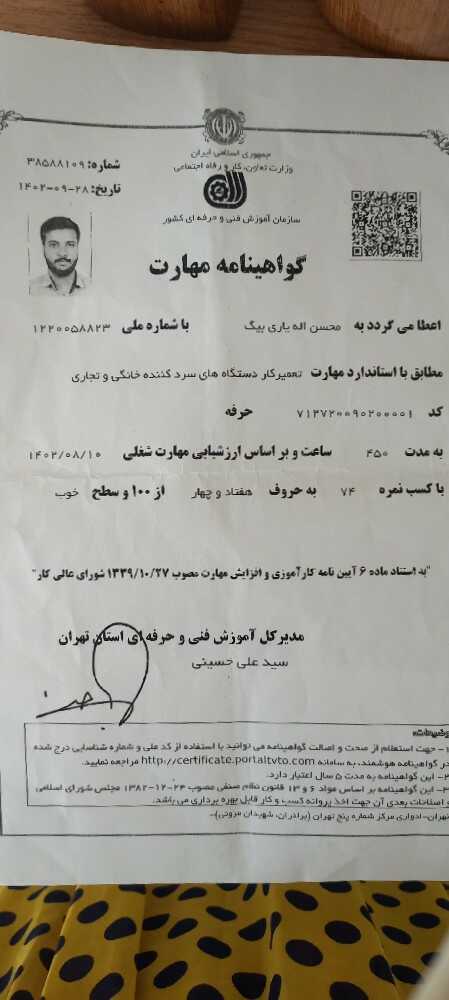 جمهوری اسلامی ایران
وزارت تعاون، کار و رفاه اجتماعی
شماره: ۳۸۵۸۸۱۰۹
تاریخ: ۱۴۰۲-۰۹-۲۸
سازمان آموزش فنی و حرفه ای کشور
گواهینامه مهارت
اعطا می گردد به محسن اله یاری بیگ با شماره ملی ۱۲۲۰۰۵۸۸۲۳
مطابق با استاندارد مهارت تعمیرکار دستگاه های سرد کننده خانگی و تجاری
کد ۷۱۲۷۲۰۰۹۰۲۰۰۰۰۱ حرفه
به مدت ۴۵۰ ساعت و بر اساس ارزشیابی مهارت شغلی ۱۴۰۲/۰۸/۱۰
با کسب نمره ۷۴ به حروف هفتاد و چهار از ۱۰۰ و سطح خوب
"به استناد ماده ۶ آیین نامه کارآموزی و افزایش مهارت مصوب ۱۳۳۹/۱۰/۲۷ شورای عالی کار"
مدیرکل آموزش فنی و حرفه ای استان تهران
سید علی حسینی
توضیحات:
۱- جهت استعلام از صحت و اصالت گواهینامه می توانید با استفاده از کد ملی و شماره شناسایی درج شده
در گواهینامه هوشمند، به سامانه http://certificate.portaltvto.com مراجعه نمایید.
۲- این گواهینامه به مدت ۵ سال اعتبار دارد.
۳- این گواهینامه بر اساس مواد ۶ و ۱۳ قانون نظام صنفی مصوب ۲۴-۱۲-۱۳۸۲ مجلس شورای اسلامی
و اصلاحات بعدی آن جهت اخذ پروانه کسب و کار قابل بهره برداری می باشد.
تهران-ادواری مرکز شماره پنج تهران (برادران، شهیدان مزوئی)-